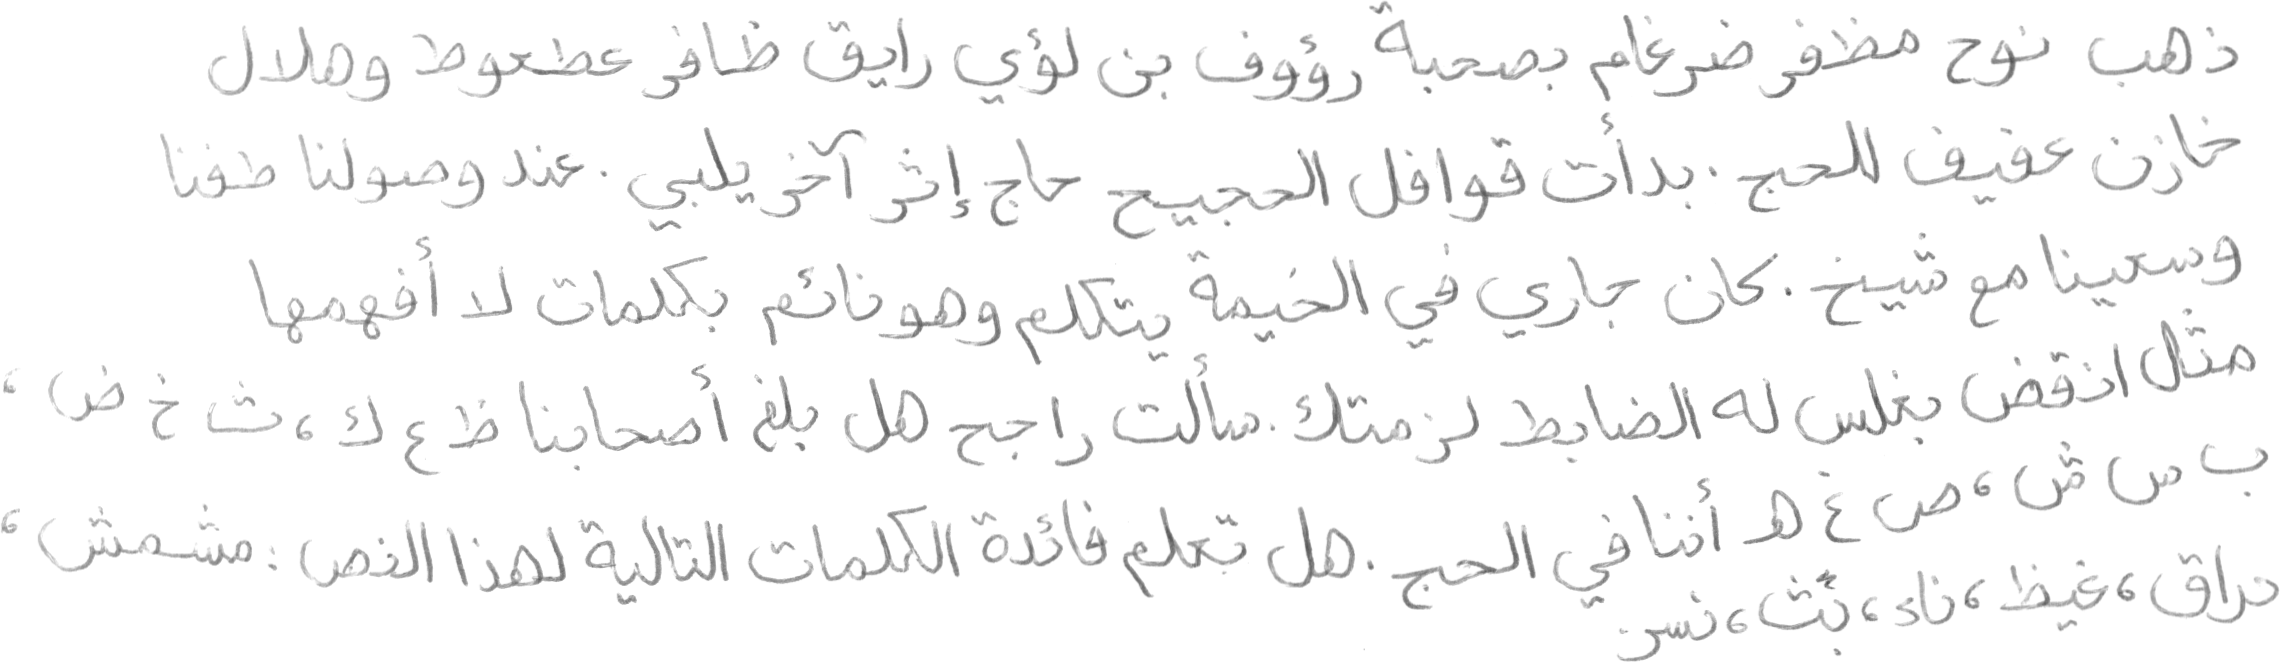 ذهب نوح مظفر ضرغام بصحبة رؤوف بن لؤي رايق ظافر عطعوط وهلال
خازن عفيف للحج . بدأت قوافل الحجيج حاج إثر آخر يلبي . عند وصولنا طفنا
وسعينا مع شيخ . كان جاري في الخيمة يتكلم وهو نائم بكلمات لا أفهمها
مثل انقض بغلس له الضابط لزمتك . سألت راجح هل بلغ أصحابنا ظ ع ك ، ث خ ض ،
ب س ش ، ص غ هـ أننا في الحج . هل تعلم فائدة الكلمات التالية لهذا النص : مشمش ،
دراق ، غيظ ، ناء ، بث ، نسر